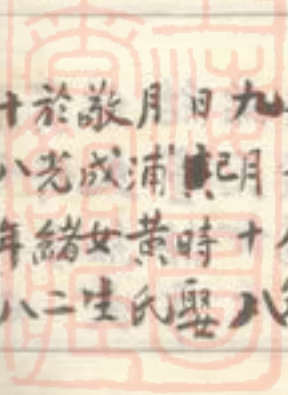 九月十八
日巳時娶
月浦黄氏
敬成女生
於光緒二
十八年八